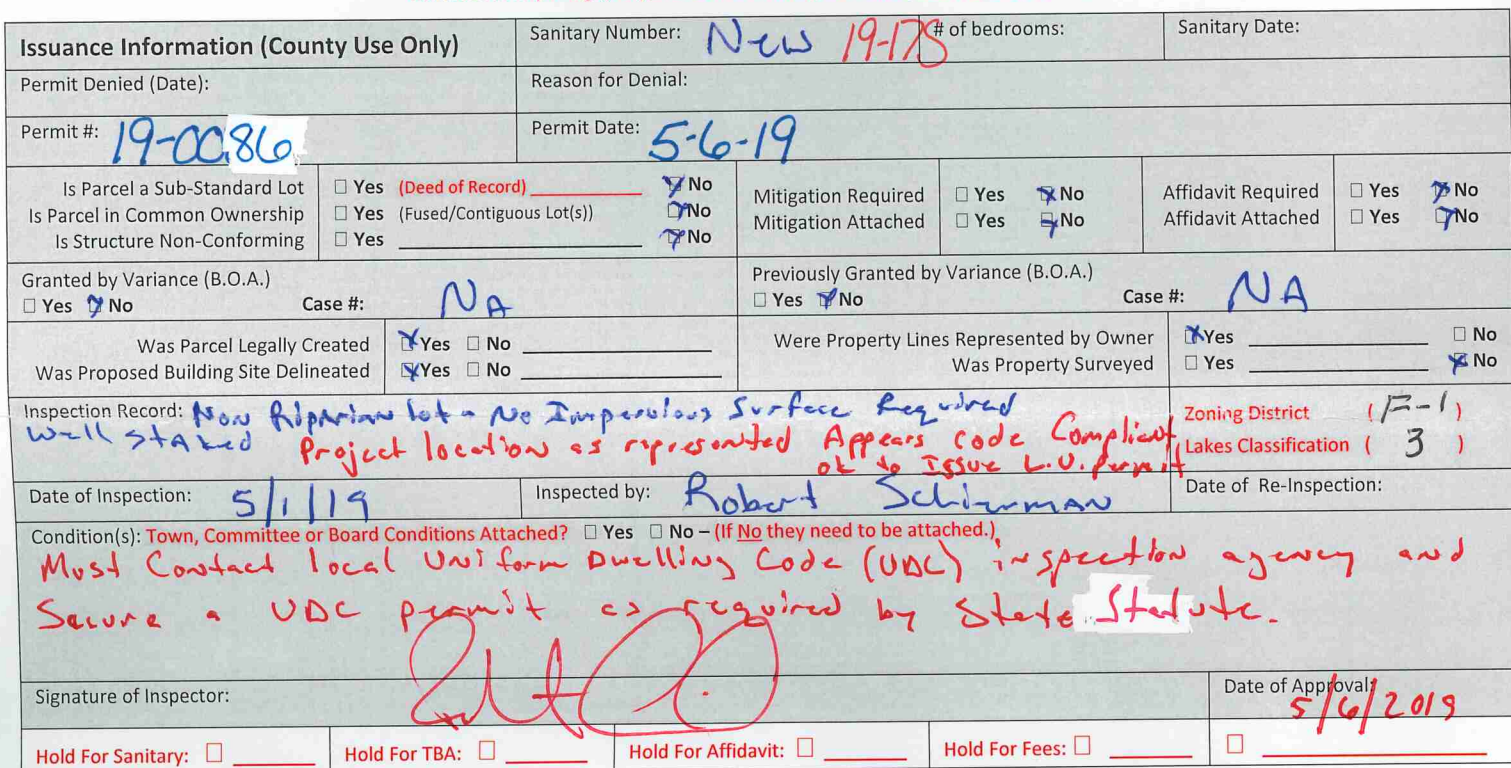 Issuance Information (County Use Only) Sanitary Number: New 19-17S # of bedrooms: Sanitary Date:
Permit Denied (Date): Reason for Denial:
Permit #: 19-0086 Permit Date: 5-6-19
Is Parcel a Sub-Standard Lot □ Yes (Deed of Record) ☒ No
Is Parcel in Common Ownership □ Yes (Fused/Contiguous Lot(s)) ☒ No
Is Structure Non-Conforming □ Yes ☒ No
Mitigation Required □ Yes ☒ No
Mitigation Attached □ Yes ☒ No
Affidavit Required □ Yes ☒ No
Affidavit Attached □ Yes ☒ No
Granted by Variance (B.O.A.)
□ Yes ☒ No Case #: NA
Previously Granted by Variance (B.O.A.)
□ Yes ☒ No Case #: NA
Was Parcel Legally Created ☒ Yes □ No
Was Proposed Building Site Delineated ☒ Yes □ No
Were Property Lines Represented by Owner ☒ Yes □ No
Was Property Surveyed □ Yes ☒ No
Inspection Record: Non Riparian lot - No Impervious Surface Required
Well Staked Project location as represented Appears Code Compliant
ok to Issue L.U. Permit
Zoning District (F-1)
Lakes Classification ( 3 )
Date of Inspection: 5/1/19 Inspected by: Robert Schierman Date of Re-Inspection:
Condition(s): Town, Committee or Board Conditions Attached? □ Yes □ No – (If No they need to be attached.)
Must Contact local Uniform Dwelling Code (UDC) inspection agency and
Secure a UDC permit as required by State Statute.
Signature of Inspector: Date of Approval: 5/6/2019
Hold For Sanitary: □ Hold For TBA: □ Hold For Affidavit: □ Hold For Fees: □ □